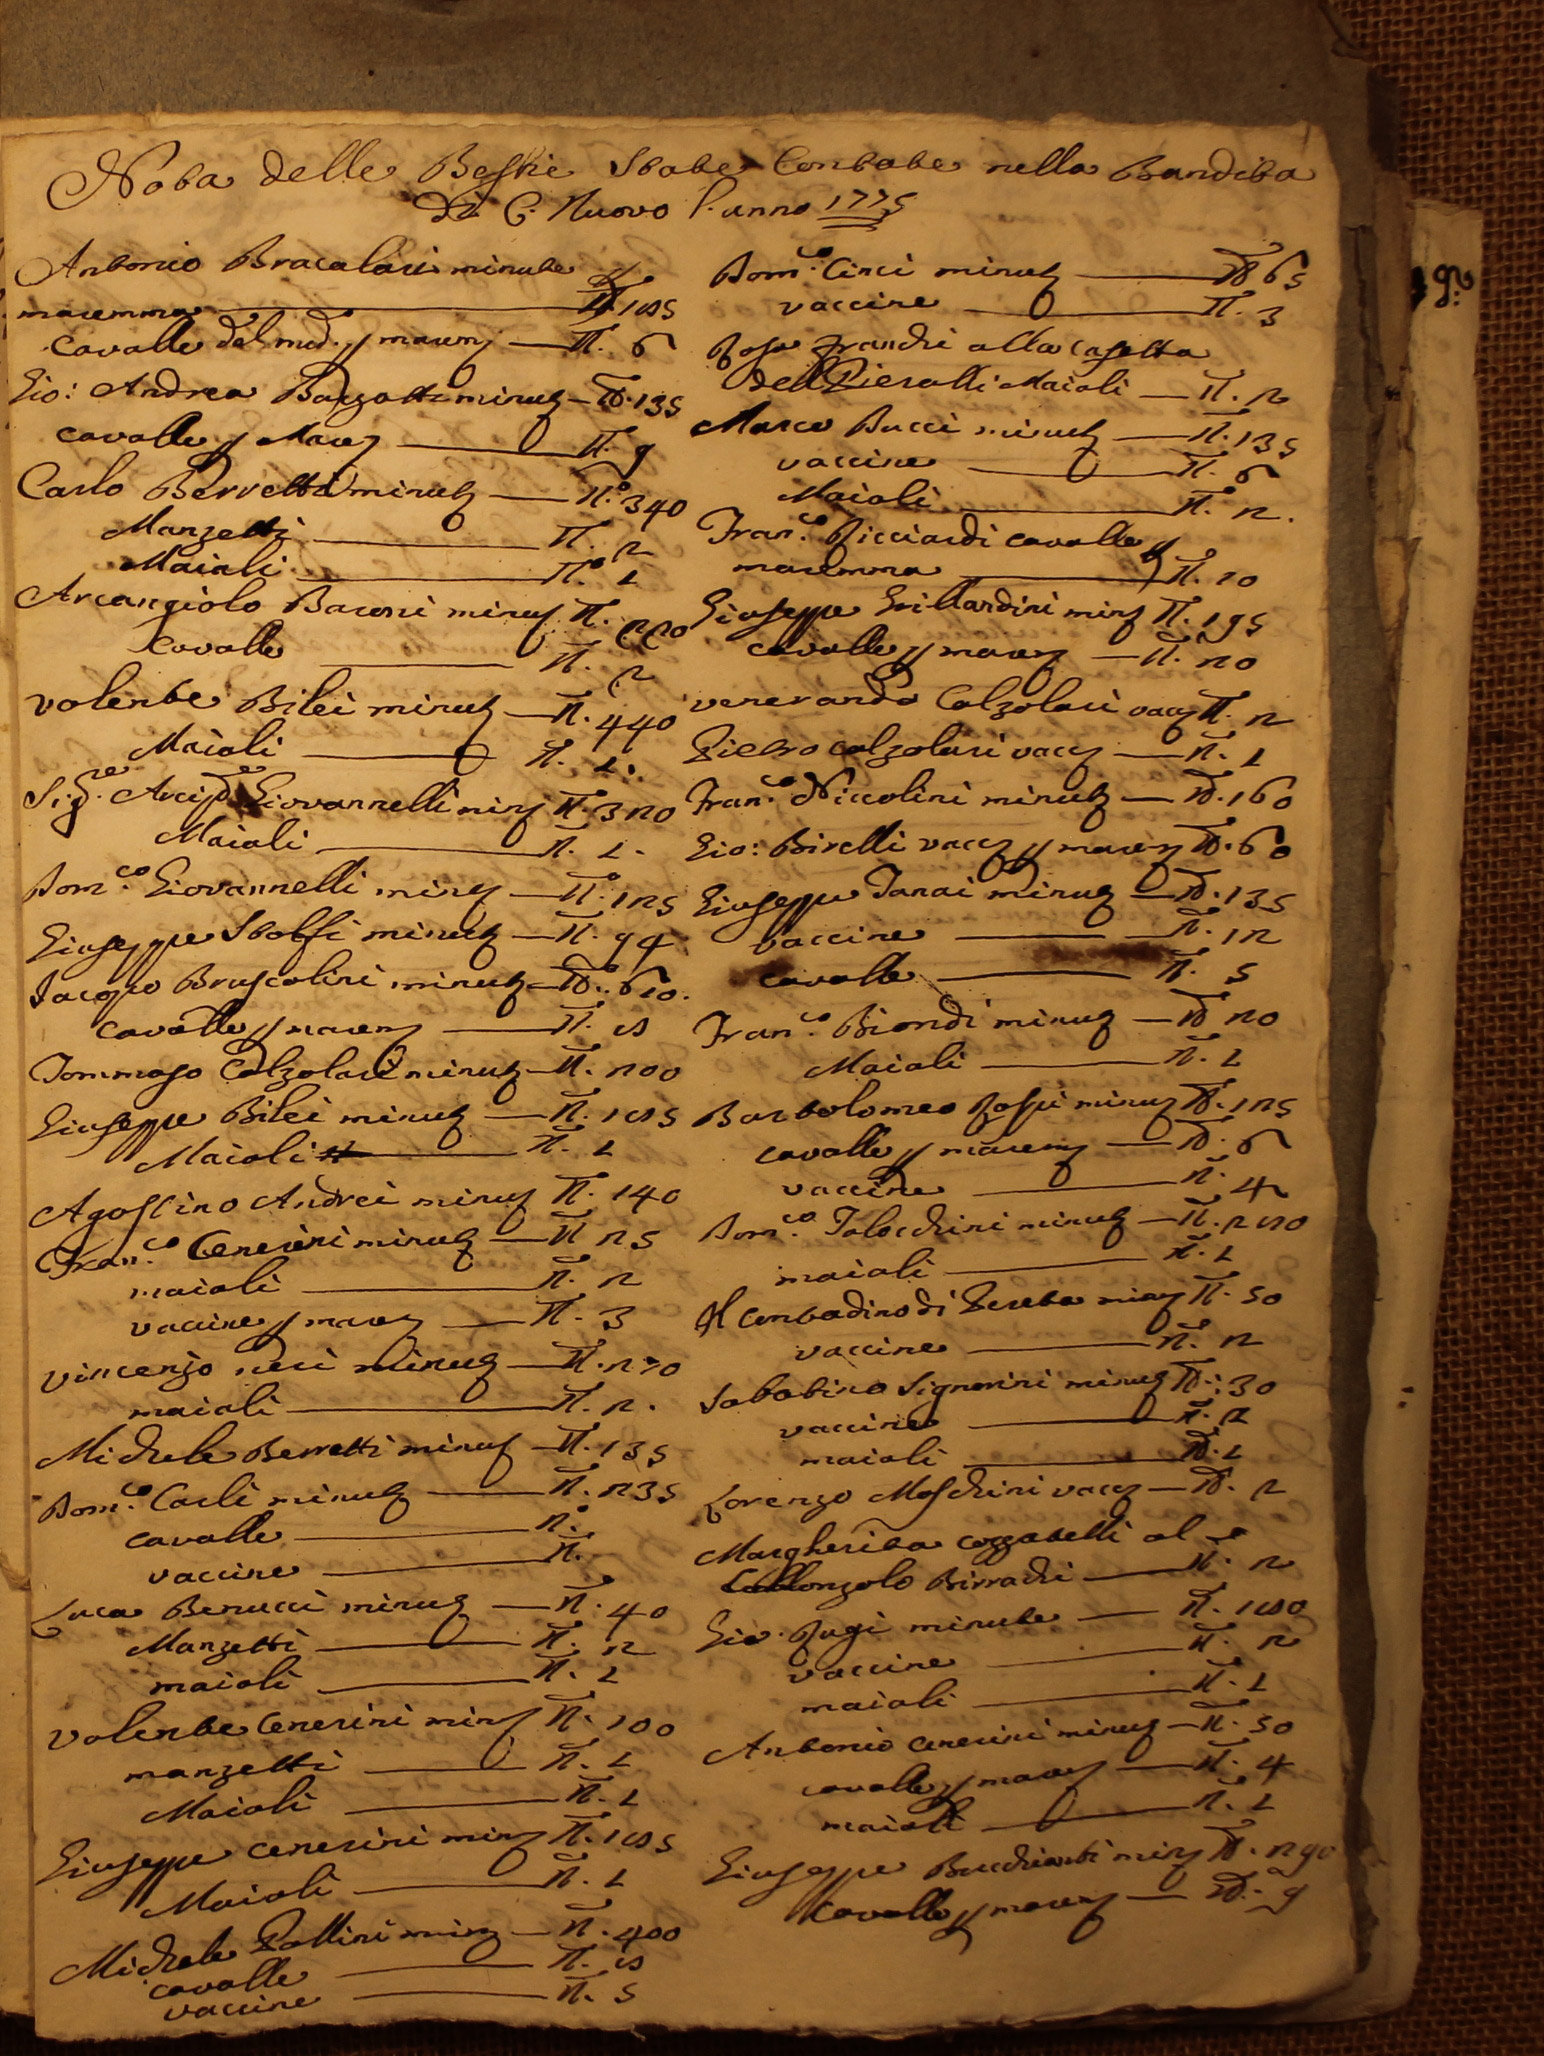 Nota delle Bestie State Contate nella Bandita
di C. Nuovo l'anno 1775
Antonio Bracalari minute
maremma N. 185
Cavalle del md. p marem N. 6
Gio: Andrea minut N. 135
cavalle p Marem N. 9
Carlo Berretta minut N.º 340
Manzetti N. 2
Maiali N.º 1
Arcangiolo Baconi minut N. 220
Cavalle N. 2
Valente Bilei minut N. 440
Maiali N. 1
Sig.re Arcip.e Giovannelli min N. 320
Maiali N. 1
Dom.co Giovannelli minut N. 125
Giuseppe Stolfi minut N. 94
Jacopo Bruscolini minut N. 610
cavalle p marem N. 8
Tommaso Calzolari minut N. 200
Giuseppe Bilei minut N. 185
Maiali N. 1
Agostino Andrei minut N. 140
Fran.co Cenerini minut N. 25
maiali N. 2
vaccine p marem N. 3
Vincenzo neri minut N. 270
maiali N. 2
Michele Berretti minut N. 135
Dom.co Carli minut N. 235
cavalle N.
vaccine N.
Luca Benucci minut N. 40
Manzetti N. 2
maiali N. 1
Valente Cenerini min N. 100
manzetti N. 1
Maiali N. 1
Giuseppe Cenerini min N. 185
Maiali N. 1
Michele Pallini min N. 400
cavalle N. 8
vaccine N. 5
Dom.co Cinci minut N. 65
vaccine N. 3
Rosa Franchi alla Casetta
dell Pieralli Maiali N. 2
Marco Bucci minut N. 135
vaccine N. 6
Maiali N. 2
Fran.co Ricciardi cavalle p
maremma N. 10
Giuseppe Grillandini min N. 195
cavalle p marem N. 20
Venerando Calzolari vacc N. 2
Pietro Calzolari vacc N. 1
Fran.co Niccolini minut N. 160
Gio: Birelli vacc p marem N. 60
Giuseppe Fanai minut N. 135
vaccine N. 12
cavalle N. 5
Fran.co Biondi minut N. 20
Maiali N. 1
Bartolomeo Rossi minut N. 125
cavalle p marem N. 6
vaccine N. 4
Dom.co Talocchini minut N. 280
maiali N. 1
Il contadino di Pereta min N. 50
vaccine N. 2
Sabatino Signorini minut N. 30
vaccine N. 2
maiali N. 1
Lorenzo Moschini vacc N. 2
Margherita Cozzatelli al
Collonzolo Birrachi N. 2
Gio. Rugi minute N. 180
vaccine N. 2
maiali N. 1
Antonio Cenerini minut N. 50
cavalle p marem N. 4
maiali N. 1
Giuseppe Bucchianti min N. 290
cavalle p marem N. 9